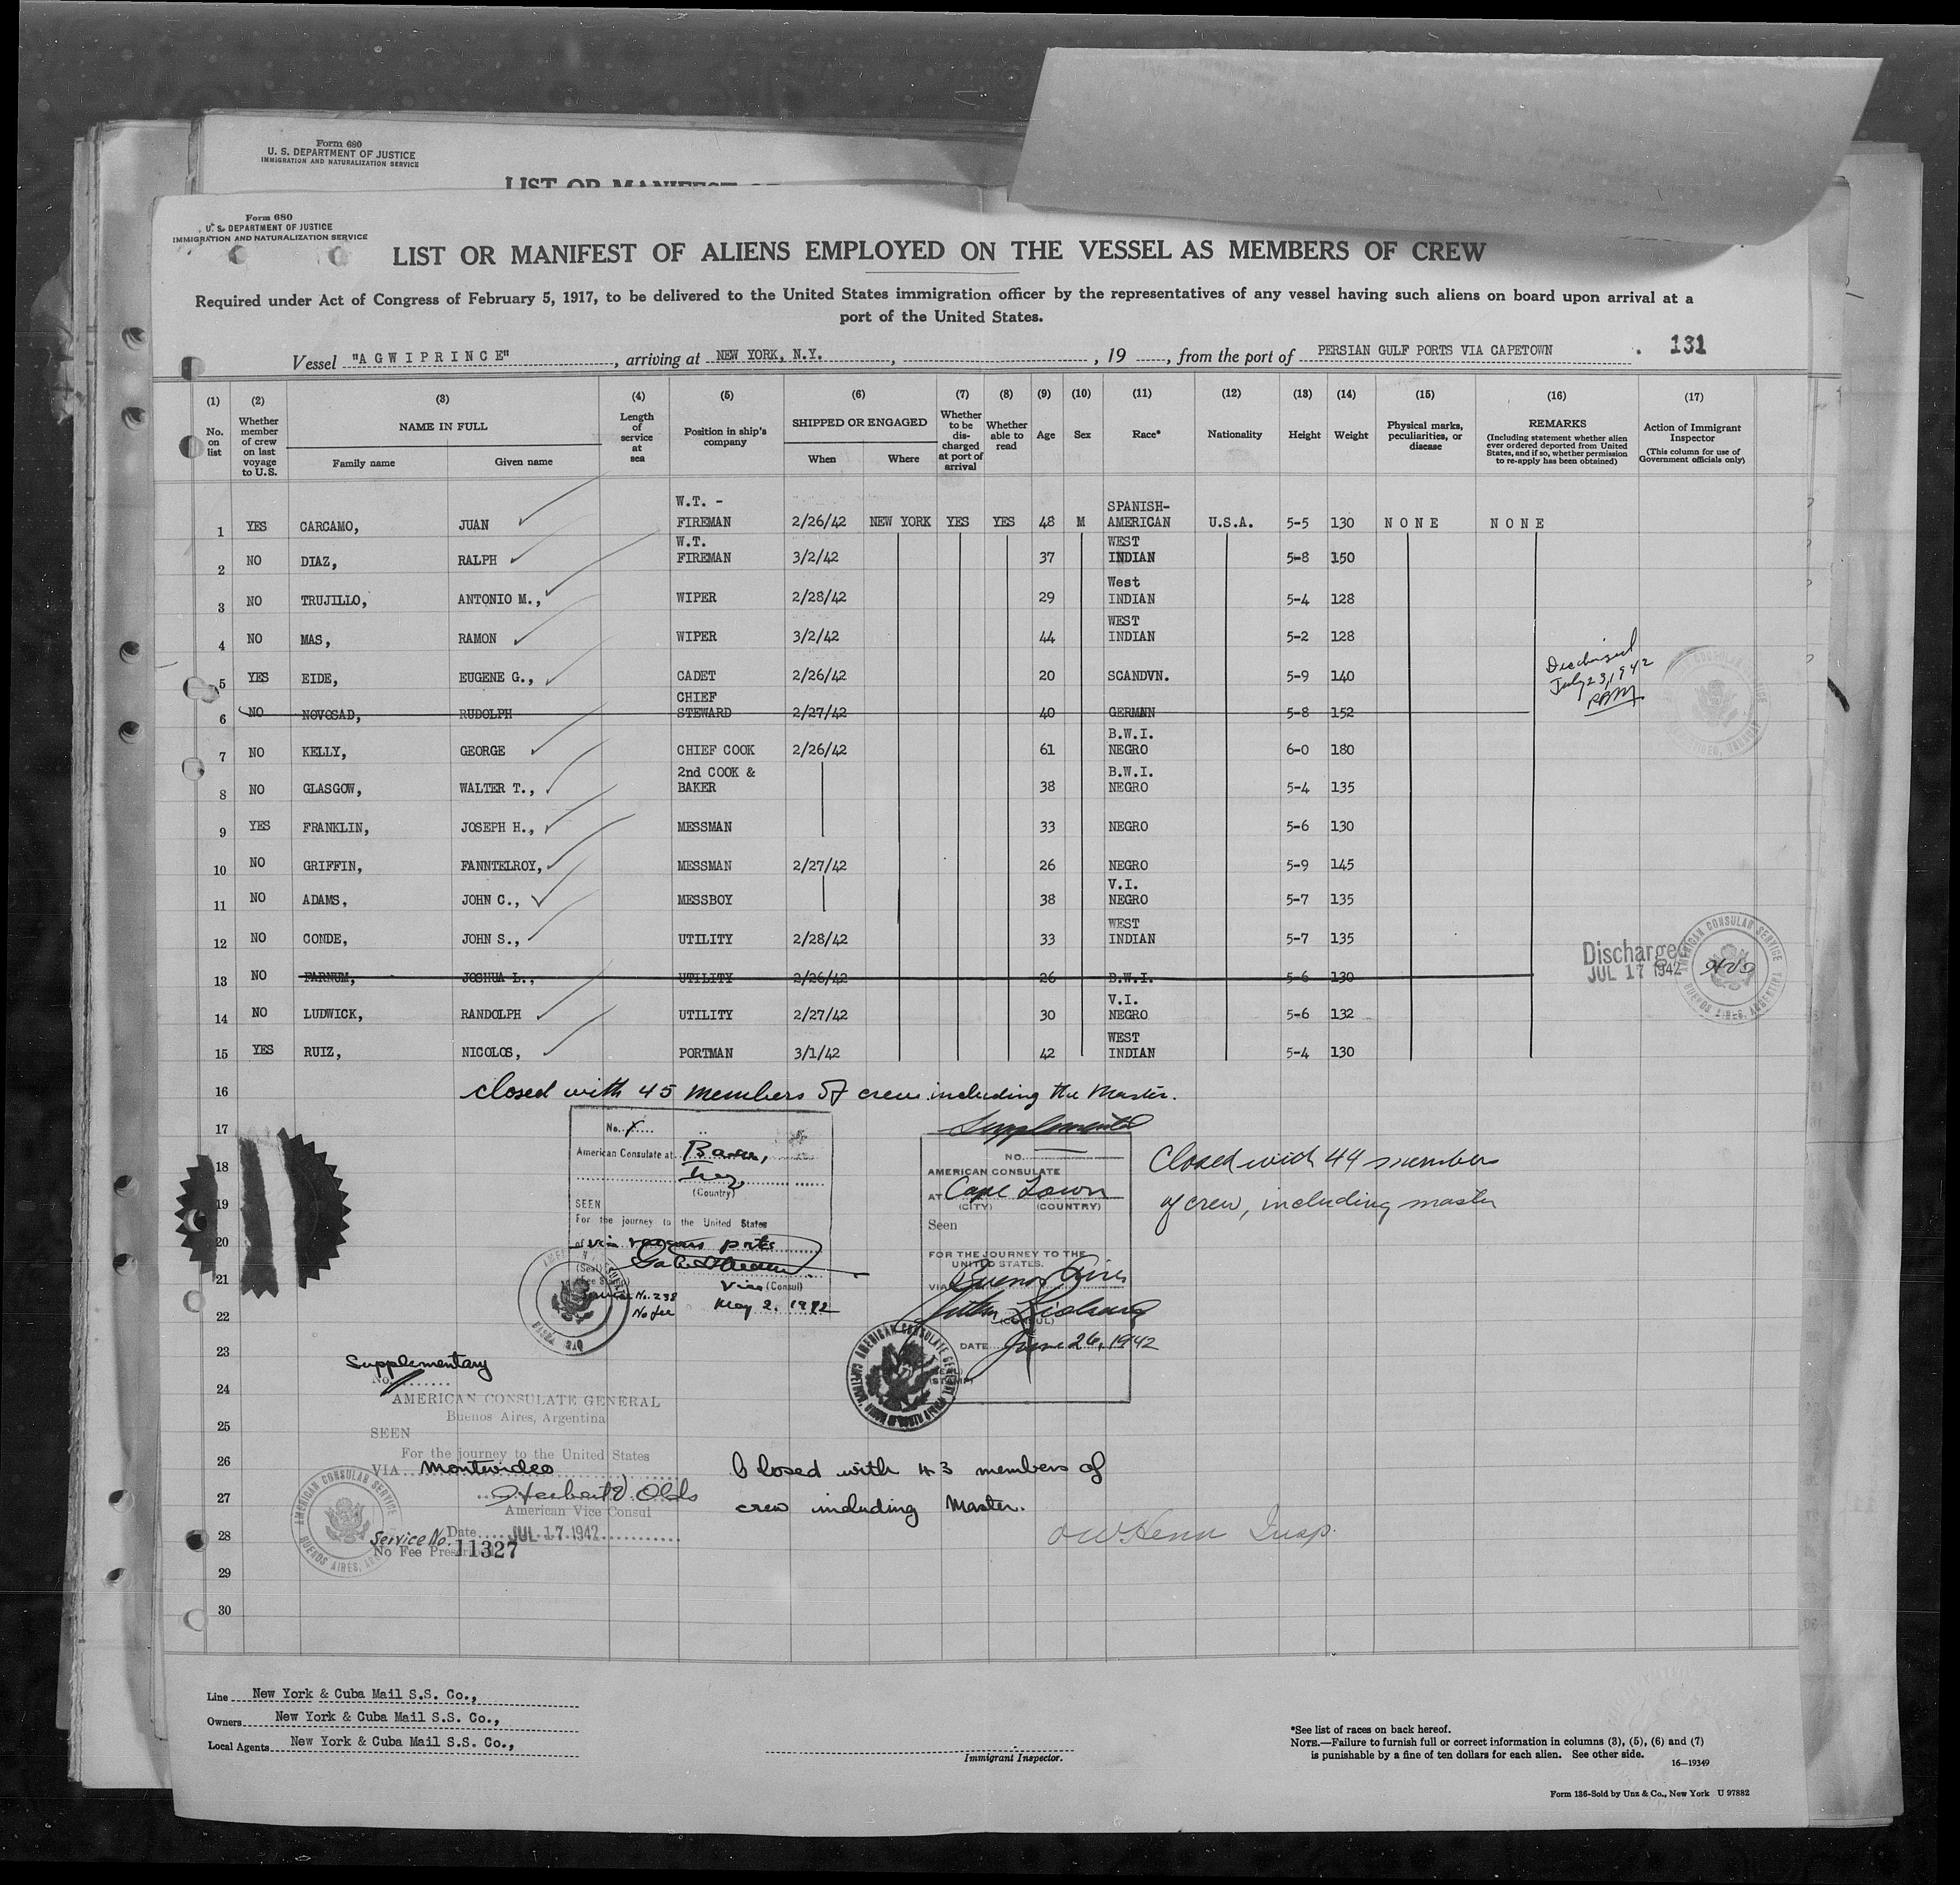 Form 680
U. S. DEPARTMENT OF JUSTICE
IMMIGRATION AND NATURALIZATION SERVICE
LIST OR MANIFEST
Form 680
U. S. DEPARTMENT OF JUSTICE
IMMIGRATION AND NATURALIZATION SERVICE
LIST OR MANIFEST OF ALIENS EMPLOYED ON THE VESSEL AS MEMBERS OF CREW
Required under Act of Congress of February 5, 1917, to be delivered to the United States immigration officer by the representatives of any vessel having such aliens on board upon arrival at a
port of the United States.
Vessel "AGWIPRINCE", arriving at NEW YORK, N.Y., , 19 , from the port of PERSIAN GULF PORTS VIA CAPETOWN . 131
(1) No. on list
(2) Whether member of crew on last voyage to U.S.
(3) NAME IN FULL Family name Given name
(4) Length of service at sea
(5) Position in ship's company
(6) SHIPPED OR ENGAGED When Where
(7) Whether to be discharged at port of arrival
(8) Whether able to read
(9) Age
(10) Sex
(11) Race*
(12) Nationality
(13) Height
(14) Weight
(15) Physical marks, peculiarities, or disease
(16) REMARKS (Including statement whether alien ever ordered deported from United States, and if so, whether permission to re-apply has been obtained)
(17) Action of Immigrant Inspector (This column for use of Government officials only)
1 YES CARCAMO, JUAN W.T. - FIREMAN 2/26/42 NEW YORK YES YES 48 M SPANISH-AMERICAN U.S.A. 5-5 130 NONE NONE
2 NO DIAZ, RALPH W.T. FIREMAN 3/2/42 37 WEST INDIAN 5-8 150
3 NO TRUJILLO, ANTONIO M., WIPER 2/28/42 29 West INDIAN 5-4 128
4 NO MAS, RAMON WIPER 3/2/42 44 WEST INDIAN 5-2 128
5 YES EIDE, EUGENE G., CADET 2/26/42 20 SCANDVN. 5-9 140
6 NO NOVOSAD, RUDOLPH CHIEF STEWARD 2/27/42 40 GERMAN 5-8 152 Discharged July 23, 1942
7 NO KELLY, GEORGE CHIEF COOK 2/26/42 61 B.W.I. NEGRO 6-0 180
8 NO GLASGOW, WALTER T., 2nd COOK & BAKER 38 B.W.I. NEGRO 5-4 135
9 YES FRANKLIN, JOSEPH H., MESSMAN 33 NEGRO 5-6 130
10 NO GRIFFIN, FANNTELROY, MESSMAN 2/27/42 26 NEGRO 5-9 145
11 NO ADAMS, JOHN C., MESSBOY 38 V.I. NEGRO 5-7 135
12 NO CONDE, JOHN S., UTILITY 2/28/42 33 WEST INDIAN 5-7 135
13 NO FARNUM, JOSHUA L., UTILITY 2/26/42 26 B.W.I. 5-6 130 Discharged JUL 17 1942 AMERICAN CONSULAR SERVICE BUENOS AIRES, ARGENTINA
14 NO LUDWICK, RANDOLPH UTILITY 2/27/42 30 V.I. NEGRO 5-6 132
15 YES RUIZ, NICOLOS, PORTMAN 3/1/42 42 WEST INDIAN 5-4 130
16 closed with 45 members of crew including the Master.
17
18
19
20
21
22
23
24
25
26
27
28
29
30
No.
American Consulate at Basra,
Iraq
(Country)
SEEN
For the journey to the United States
via various ports
(Seal)
Vice (Consul)
Service No. 238
No fee
May 2, 1942
Supplemental
NO.
AMERICAN CONSULATE
AT Cape Town
(CITY) (COUNTRY)
Seen
FOR THE JOURNEY TO THE
UNITED STATES.
VIA Buenos Aires
(CONSUL)
DATE June 26, 1942
Closed with 44 members
of crew, including master
Supplementary
No.
AMERICAN CONSULATE GENERAL
Buenos Aires, Argentina
SEEN
For the journey to the United States
VIA Montevideo
Herbert V. Olds
American Vice Consul
Date JUL 17 1942
Service No. 11327
No Fee Prescribed
AMERICAN CONSULAR SERVICE
BUENOS AIRES,
Closed with 43 members of
crew including Master.
Insp.
Line New York & Cuba Mail S.S. Co.,
Owners New York & Cuba Mail S.S. Co.,
Local Agents New York & Cuba Mail S.S. Co.,
Immigrant Inspector.
*See list of races on back hereof.
NOTE.—Failure to furnish full or correct information in columns (3), (5), (6) and (7)
is punishable by a fine of ten dollars for each alien. See other side.
16—19349
Form 136-Sold by Unz & Co., New York U 97882